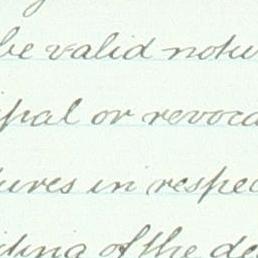 be valid notw
ipal or revoca
ures in respec
iting of the de